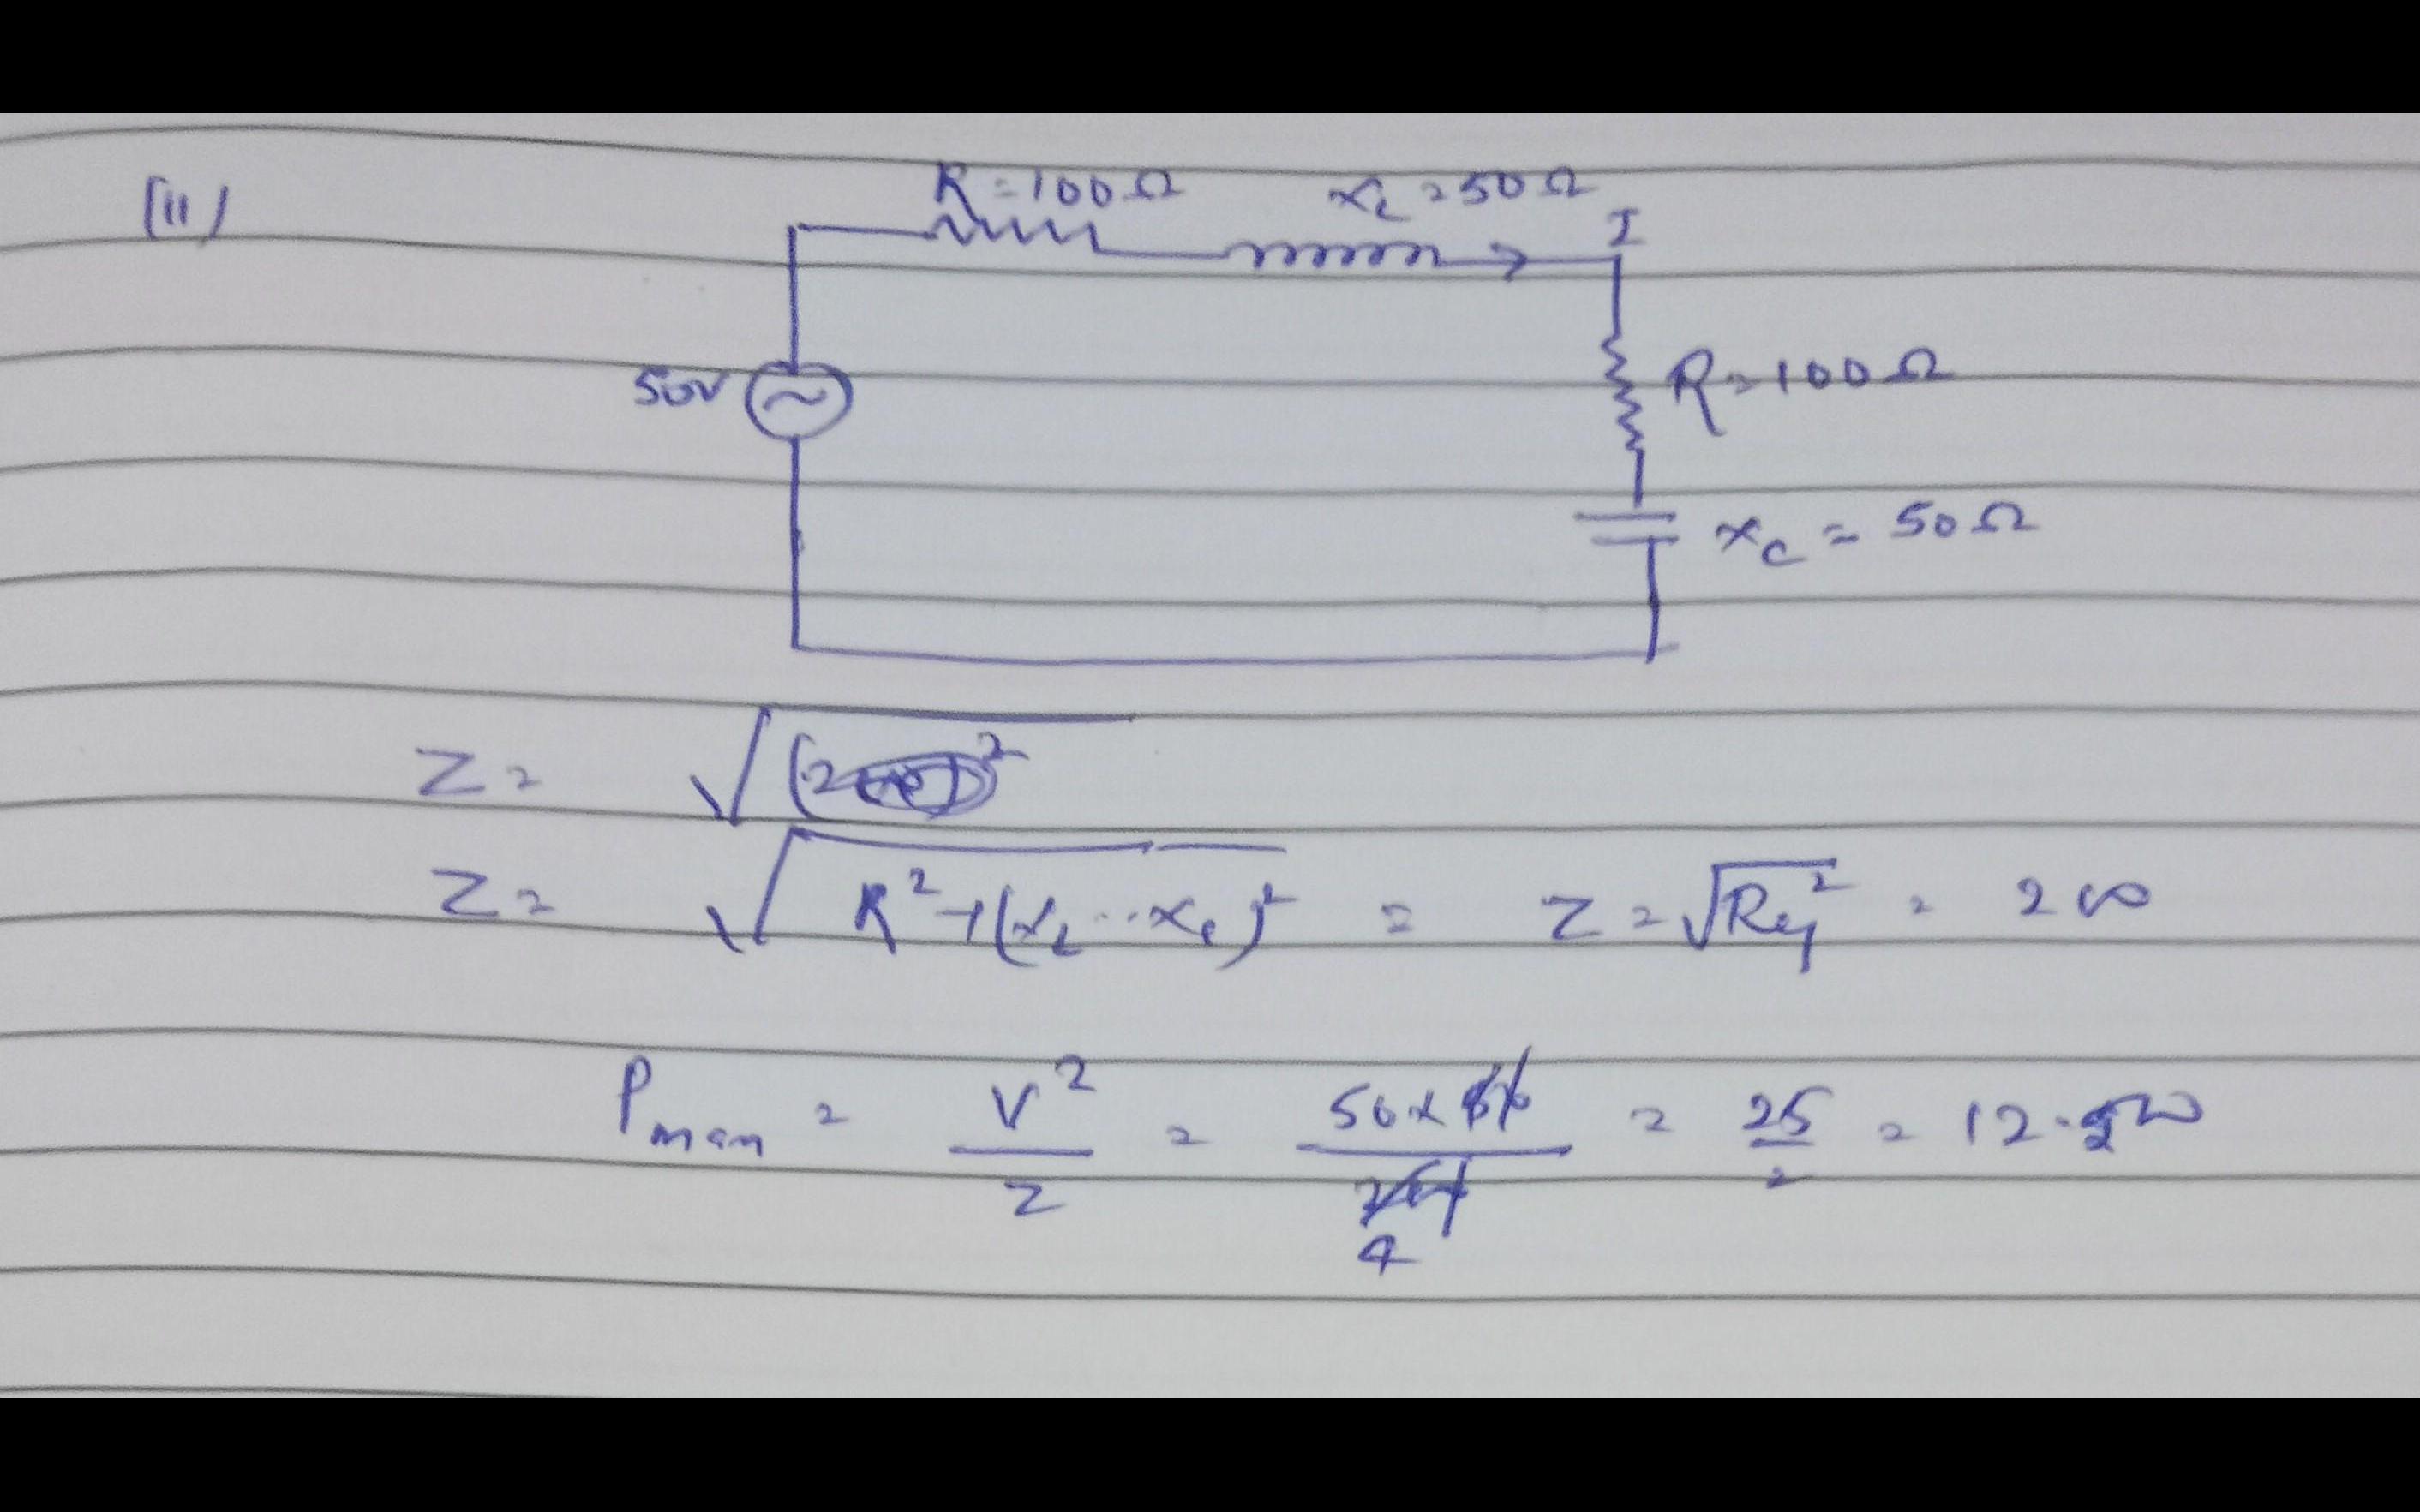 (ii)
R = 100 Ω x_L = 50 Ω
I
50V
R = 100 Ω
x_C = 50 Ω
Z = √(2
Z = √R² + (x_L - x_C)² = Z = √Req² = 200
P_max = V² / Z = 50 x 50 / 200 4 = 25 / 2 = 12.5W